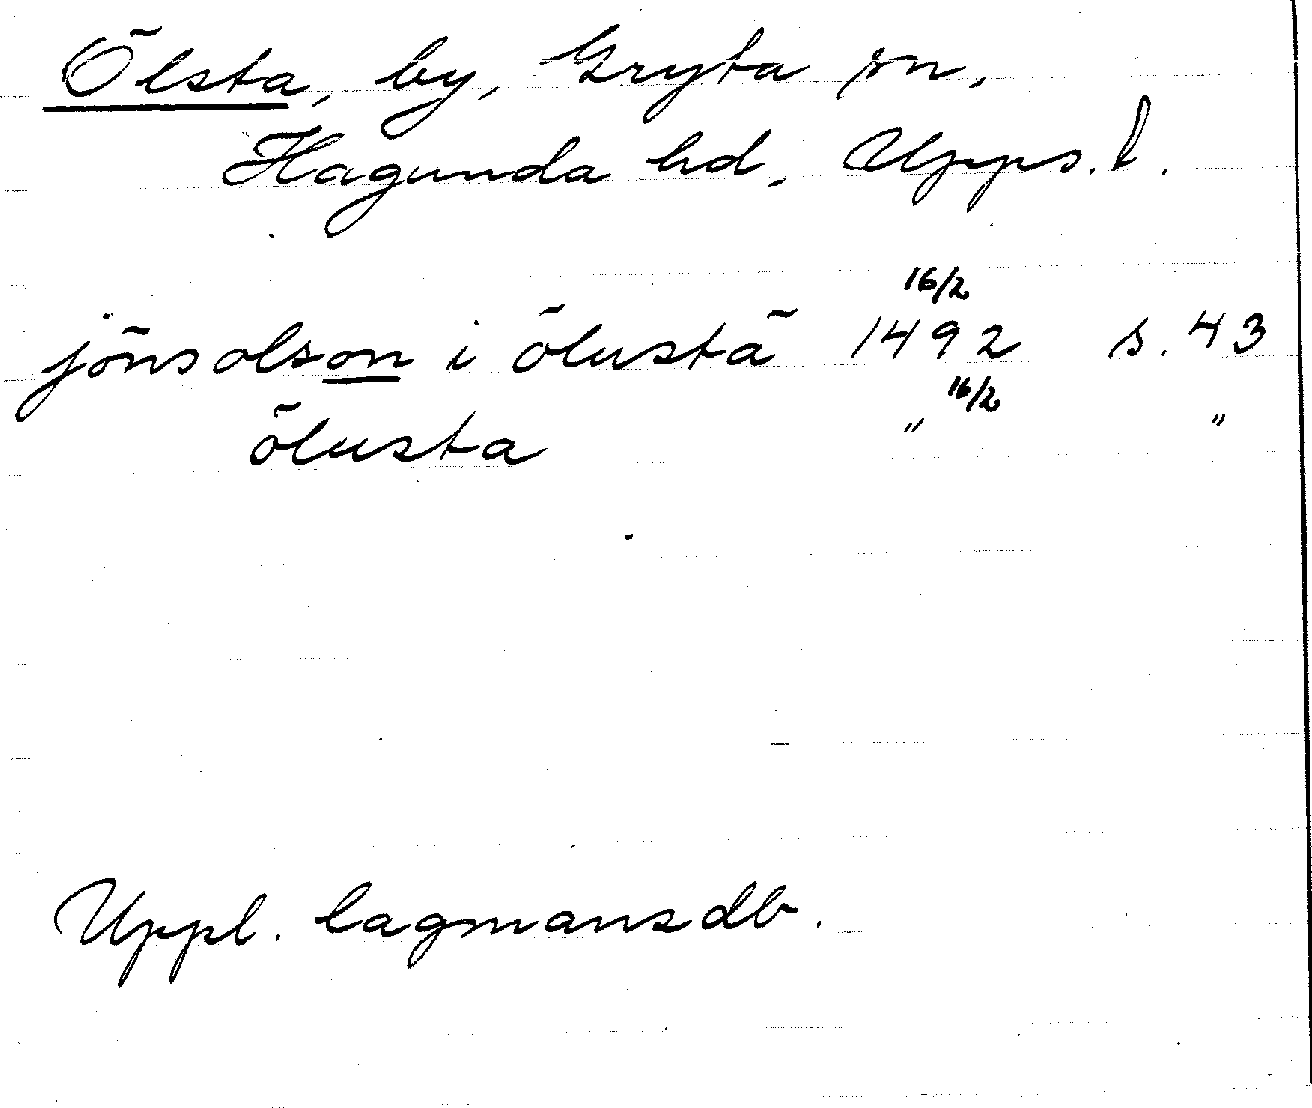 Ölsta, by, Gryta sn,
Hagunda hd, Upps. l.
jöns olson i ölustä 16/2 1492 s. 43
ölusta " 16/2 "
Uppl. lagmansdb.